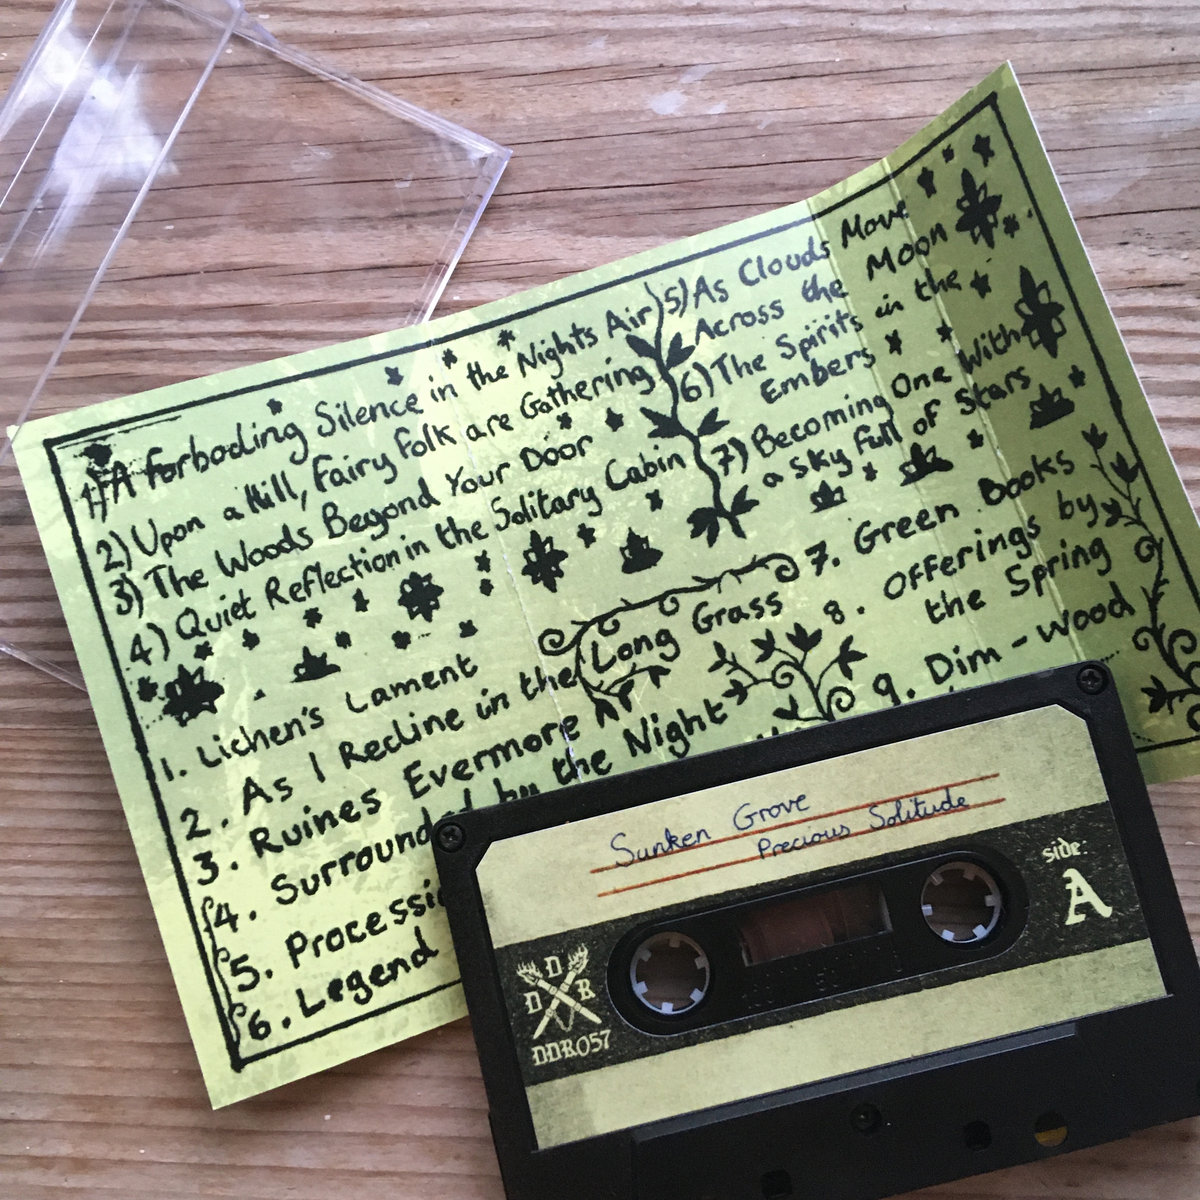 1) A forboding Silence in the Nights Air
2) Upon a Hill, Fairy folk are Gathering
3) The Woods Beyond Your Door
4) Quiet Reflection in the Solitary Cabin
5) As Clouds Move
Across the Moon
6) The Spirits in the
Embers
7) Becoming One With
a sky full of Stars
1. Lichen's Lament
2. As I Recline in the Long Grass
3. Ruines Evermore
4. Surrounded by the Night
5.
6. Legend
7. Green Books
8. Offerings by
the Spring
9. Dim-Wood
Sunken Grove
Precious Solitude
side:
A
D
D R
DDR057